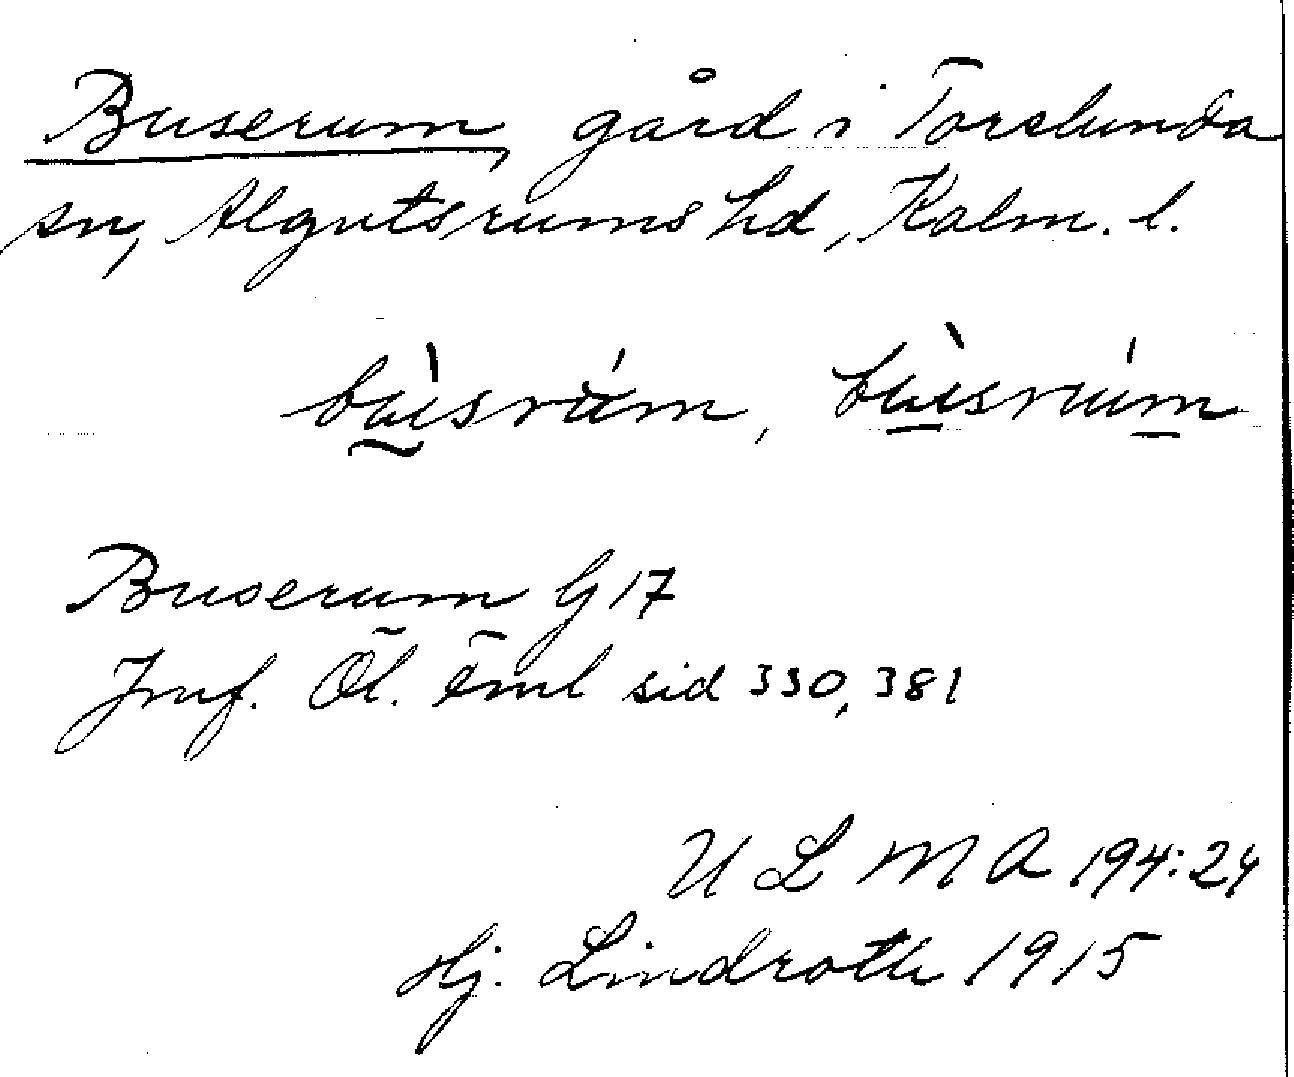 Buserum, gård i Torslunda
sn, Algutsrums hd, Kalm. l.
bùsrúm, bùsrúm
Buserum G 17
Jmf. Öl. Fml sid 330, 381
U L M A 194:24
Hj. Lindroth 1915